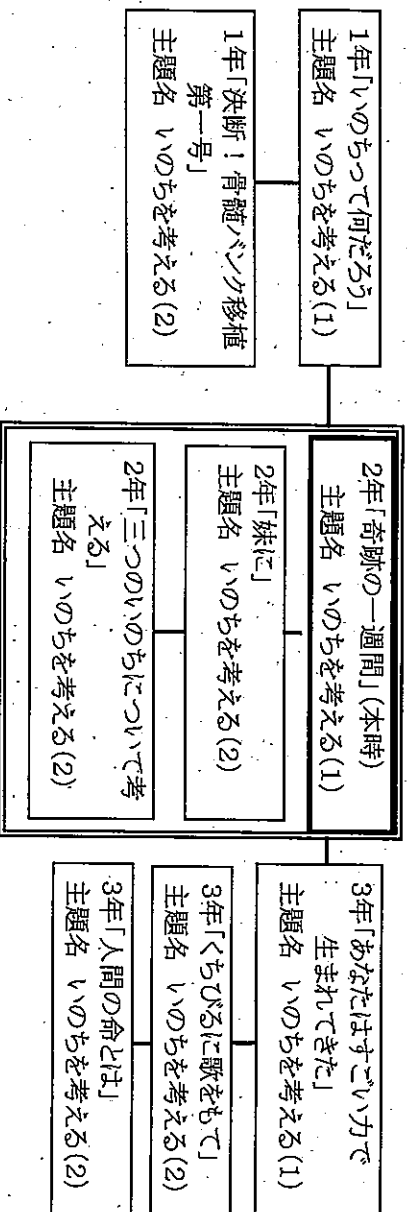 1年「いのちって何だろう」
主題名 いのちを考える(1)
1年「決断！骨髄バンク移植
第一号」
主題名 いのちを考える(2)
2年「奇跡の一週間」(本時)
主題名 いのちを考える(1)
2年「妹に」
主題名 いのちを考える(2)
2年「三つのいのちについて考
える」
主題名 いのちを考える(2)
3年「あなたはすごい力で
生まれてきた」
主題名 いのちを考える(1)
3年「くちびるに歌をもて」
主題名 いのちを考える(2)
3年「人間の命とは」
主題名 いのちを考える(2)